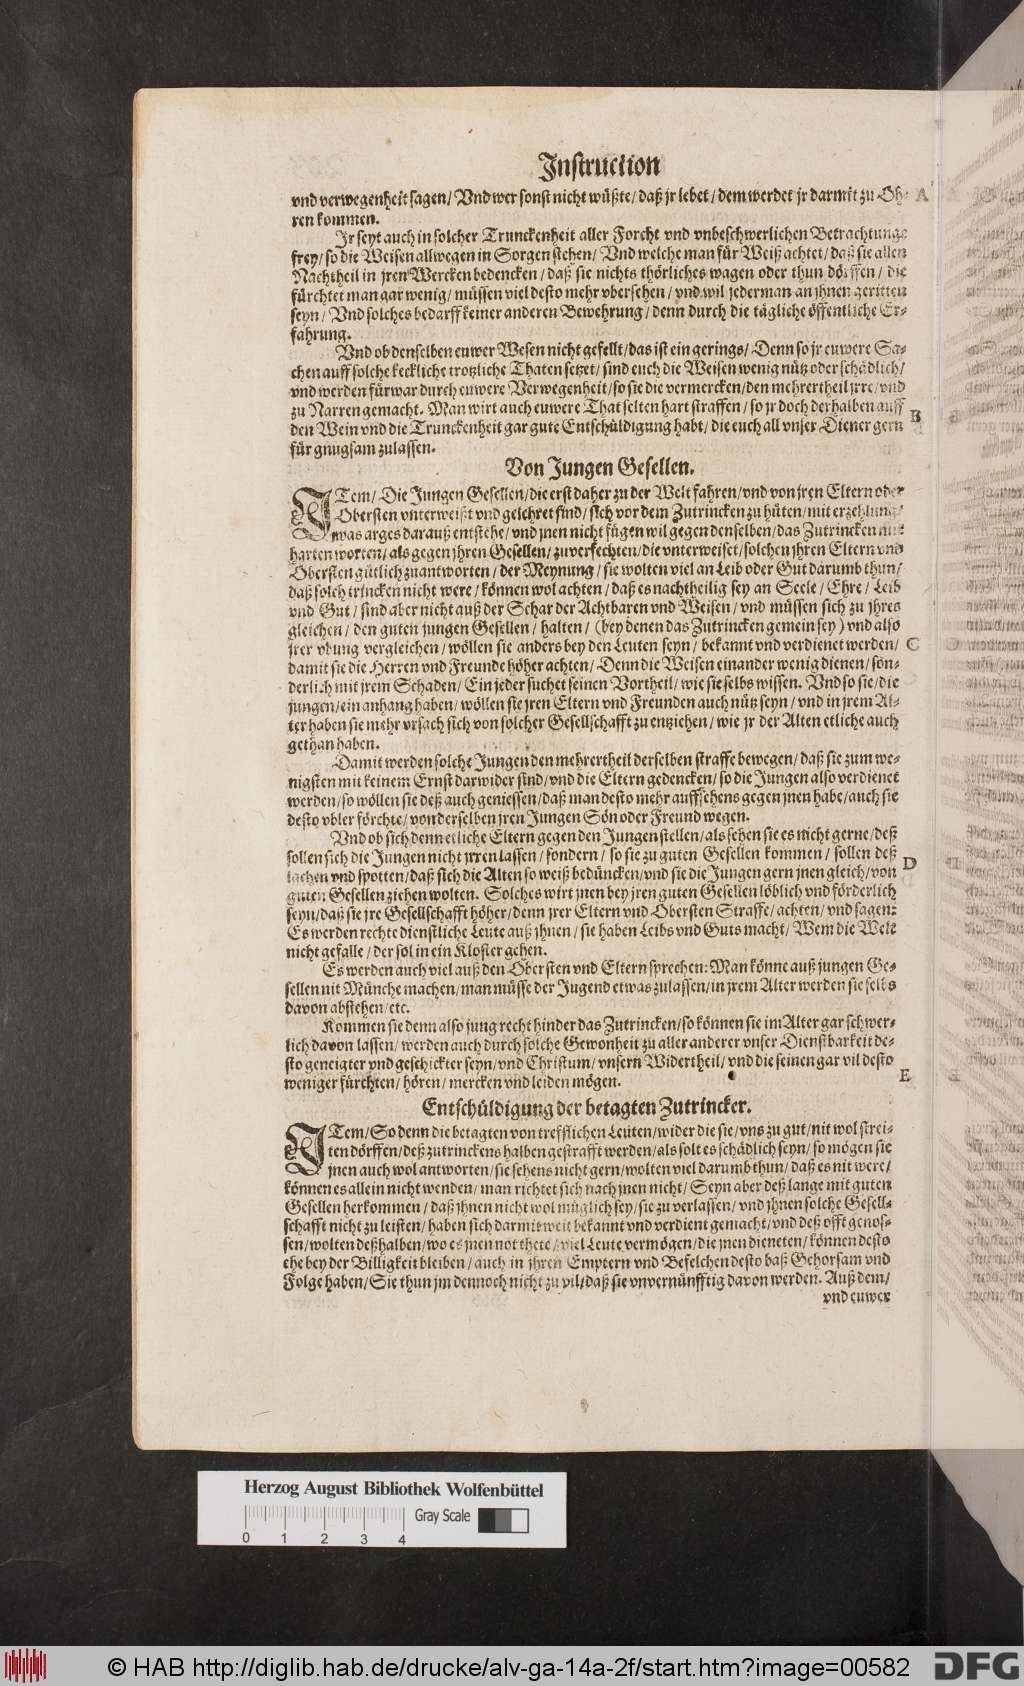 Instruction
vnd verwegenheit sagen/ Vnd wer sonst nicht wüßte/ daß jr lebet/ dem werdet jr darmit zu Oh- A
ren kommen.
Jr seyt auch in solcher Trunckenheit aller Forcht vnd vnbeschwerlichen Betrachtunge
frey/ so die Weisen allwegen in Sorgen stehen/ Vnd welche man für Weiß achtet/ daß sie allen
Nachtheil in jren Wercken bedencken/ daß sie nichts thörliches wagen oder thun dörffen/ die
fürchtet man gar wenig/ müssen viel desto mehr vbersehen/ vnd wil jederman an jhnen geritten
seyn/ Vnd solches bedarff keiner anderen Bewehrung/ denn durch die tägliche öffentliche Er-
fahrung.
Vnd ob denselben euwer Wesen nicht gefellt/ das ist ein gerings/ Denn so jr euwere Sa-
chen auff solche keckliche trotzliche Thaten setzet/ sind euch die Weisen wenig nütz oder schädlich/
vnd werden fürwar durch euwere Verwegenheit/ so sie die vermercken/ den mehrertheil jrre/ vnd
zu Narren gemacht. Man wirt auch euwere That selten hart straffen/ so jr doch derhalben auff B
den Wein vnd die Trunckenheit gar gute Entschüldigung habt/ die euch all vnser Diener gern
für gnugsam zulassen.
Von Jungen Gesellen.
JTem/ Die Jungen Gesellen/ die erst daher zu der Welt fahren/ vnd von jren Eltern oder
Obersten vnterweißt vnd gelehret sind/ sich vor dem Zutrincken zu hüten/ mit erzehlung/
was arges darauß entstehe/ vnd jnen nicht fügen wil gegen denselben/ das Zutrincken mit
harten worten/ als gegen jhren Gesellen/ zuverfechten/ die vnterweiset/ solchen jhren Eltern vnd
Obersten gütlich zuantworten/ der Meynung/ sie wolten viel an Leib oder Gut darumb thun/
daß solch trincken nicht were/ können wol achten/ daß es nachtheilig sey an Seele/ Ehre/ Leib
vnd Gut/ sind aber nicht auß der Schar der Achtbaren vnd Weisen/ vnd müssen sich zu jhres
gleichen/ den guten jungen Gesellen/ halten/ (bey denen das Zutrincken gemein sey) vnd also
jrer vbung vergleichen/ wöllen sie anders bey den Leuten seyn/ bekannt vnd verdienet werden/ C
damit sie die Herren vnd Freunde höher achten/ Denn die Weisen einander wenig dienen/ son-
derlich mit jrem Schaden/ Ein jeder suchet seinen Vortheil/ wie sie selbs wissen. Vnd so sie/ die
jungen/ ein anhang haben/ wöllen sie jren Eltern vnd Freunden auch nütz seyn/ vnd in jrem Al-
ter haben sie mehr vrsach sich von solcher Gesellschafft zu entziehen/ wie jr der Alten etliche auch
gethan haben.
Damit werden solche Jungen den mehrertheil derselben straffe bewegen/ daß sie zum we-
nigsten mit keinem Ernst darwider sind/ vnd die Eltern gedencken/ so die Jungen also verdienet
werden/ so wöllen sie deß auch geniessen/ daß man desto mehr auffsehens gegen jnen habe/ auch sie
desto vbler förchte/ von derselben jren Jungen Sön oder Freund wegen.
Vnd ob sich denn etliche Eltern gegen den Jungen stellen/ als sehen sie es nicht gerne/ deß
sollen sich die Jungen nicht jrren lassen/ sondern/ so sie zu guten Gesellen kommen/ sollen deß D
lachen vnd spotten/ daß sich die Alten so weiß bedüncken/ vnd sie die Jungen gern jnen gleich/ von
guten Gesellen ziehen wolten. Solches wirt jnen bey jren guten Gesellen löblich vnd förderlich
seyn/ daß sie jre Gesellschafft höher/ denn jrer Eltern vnd Obersten Straffe/ achten/ vnd sagen:
Es werden rechte dienstliche Leute auß jhnen/ sie haben Leibs vnd Guts macht/ Wem die Welt
nicht gefalle/ der sol in ein Kloster gehen.
Es werden auch viel auß den Obersten vnd Eltern sprechen: Man könne auß jungen Ge-
sellen nit Münche machen/ man müsse der Jugend etwas zulassen/ in jrem Alter werden sie selbs
davon abstehen/ etc.
Kommen sie denn also jung recht hinder das Zutrincken/ so können sie im Alter gar schwer-
lich davon lassen/ werden auch durch solche Gewonheit zu aller anderer vnser Dienstbarkeit de-
sto geneigter vnd geschickter seyn/ vnd Christum/ vnsern Widertheil/ vnd die seinen gar vil desto E
weniger fürchten/ hören/ mercken vnd leiden mögen.
Entschüldigung der betagten Zutrincker.
JTem/ So denn die betagten von trefflichen Leuten/ wider die sie/ vns zu gut/ nit wol strei-
ten dörffen/ deß zutrinckens halben gestrafft werden/ als solt es schädlich seyn/ so mögen sie
jnen auch wol antworten/ sie sehens nicht gern/ wolten viel darumb thun/ daß es nit were/
können es allein nicht wenden/ man richtet sich nach jnen nicht/ Seyn aber deß lange mit guten
Gesellen herkommen/ daß jhnen nicht wol müglich sey/ sie zu verlassen/ vnd jhnen solche Gesell-
schafft nicht zu leisten/ haben sich darmit weit bekannt vnd verdient gemacht/ vnd deß offt genos-
sen/ wolten deßhalben/ wo es jnen not thete/ viel Leute vermögen/ die jnen dieneten/ können desto
ehe bey der Billigkeit bleiben/ auch in jhren Emptern vnd Befelchen desto baß Gehorsam vnd
Folge haben/ Sie thun jm dennoch nicht zu vil/ daß sie vnvernünfftig davon werden. Auß dem/
vnd euwer
Herzog August Bibliothek Wolfenbüttel
Gray Scale
0 1 2 3 4
© HAB http://diglib.hab.de/drucke/alv-ga-14a-2f/start.htm?image=00582 DFG